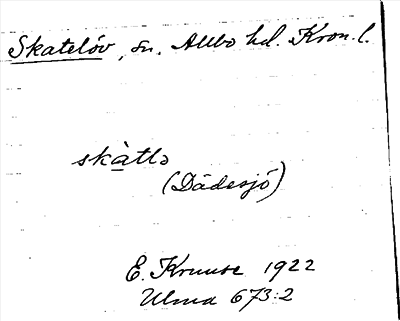 Skatelöv, sn. Allbo hd. Kron. l.
skàtlə
(Dädesjö)
E. Kruuse 1922
Ulma 673:2